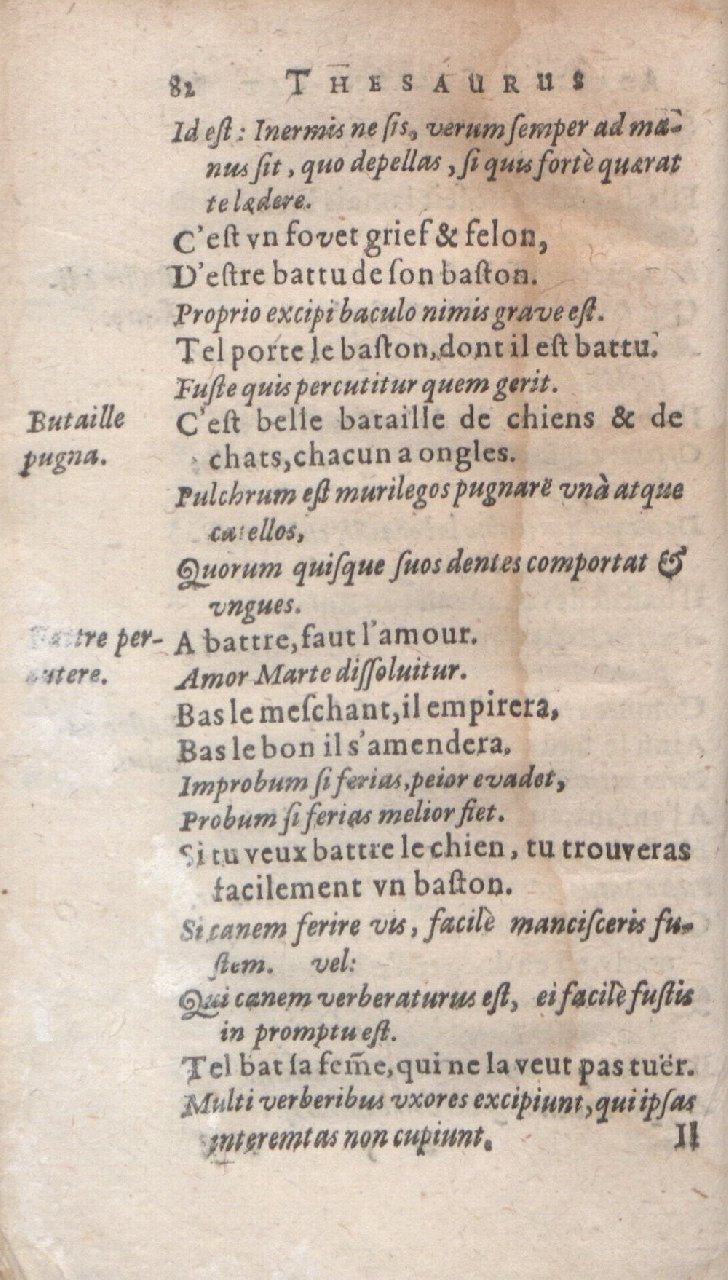 82 THESAURUS
Id eſt: Inermis ne ſis, verum ſemper ad ma-
nus ſit, quo depellas, ſi quis fortè quærat
te lædere.
C'eſt vn fovet grief & felon,
D'eſtre battu de ſon baſton.
Proprio excipi baculo nimis grave eſt.
Tel porte le baſton, dont il eſt battu.
Fuſte quis percutitur quem gerit.
Butaille
pugna.
C'eſt belle bataille de chiens & de
chats, chacun a ongles.
Pulchrum eſt murilegos pugnarë vnà atque
catellos,
Quorum quiſque ſuos dentes comportat &
vngues.
Battre per-
cutere.
A battre, faut l'amour.
Amor Marte diſſoluitur.
Bas le meſchant, il empirera,
Bas le bon il s'amendera.
Improbum ſi ferias, peior evadet,
Probum ſi ferias melior fiet.
Si tu veux battre le chien, tu trouveras
facilement vn baſton.
Si canem ferire vis, facilè manciſceris fu-
ſtem. vel:
Qui canem verberaturus eſt, ei facilè fuſtis
in promptu eſt.
Tel bat ſa fem̃e, qui ne la veut pas tuër.
Multi verberibus vxores excipiunt, qui ipſas
interemtas non cupiunt.
Il